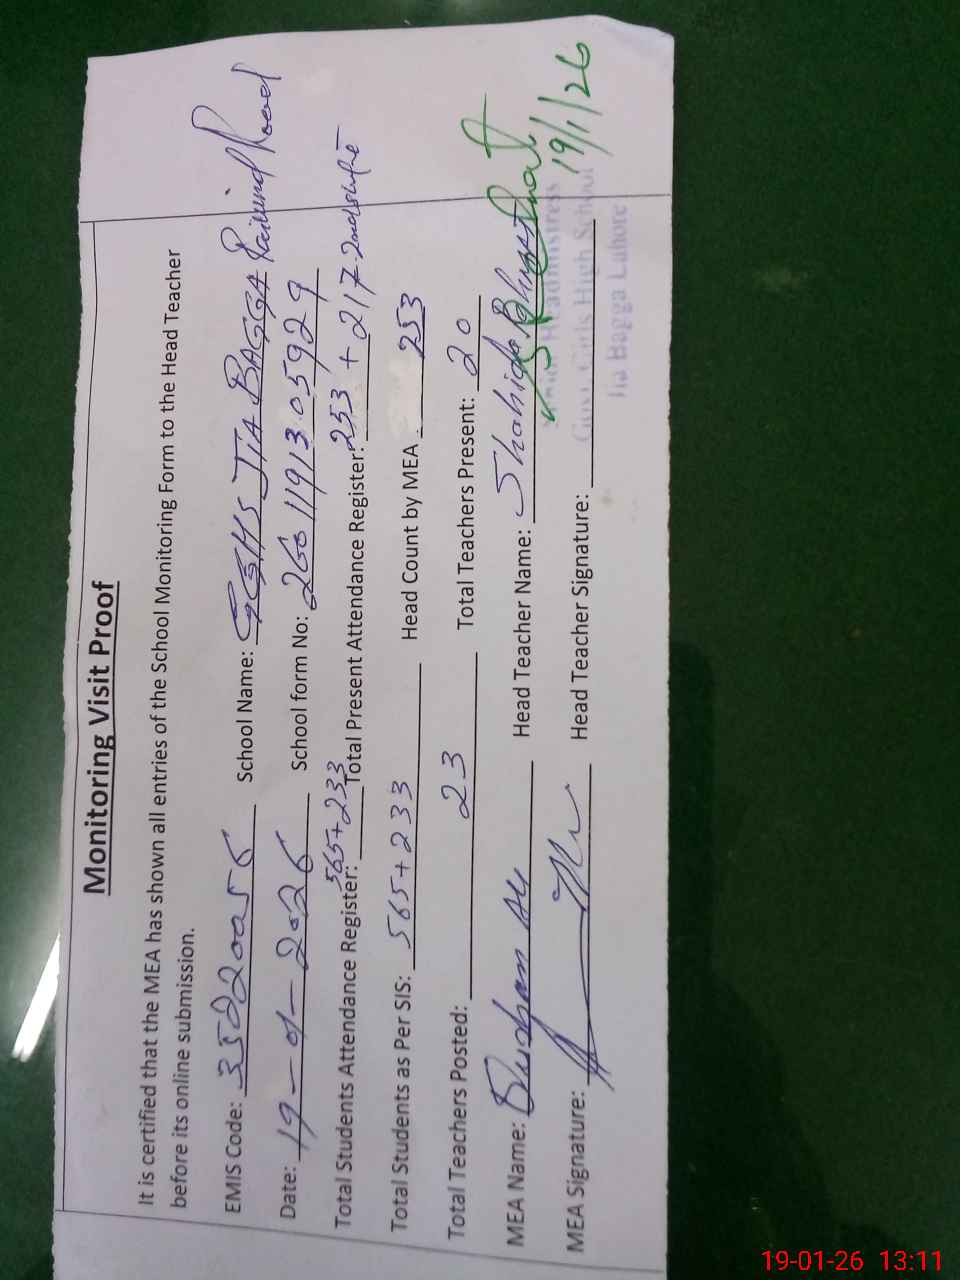 Monitoring Visit Proof
It is certified that the MEA has shown all entries of the School Monitoring Form to the Head Teacher
before its online submission.
EMIS Code: 35220056 School Name: GGHS JIA BAGGA Raiwind Road
Date: 19-01-2026 School form No: 2601191305929
Total Students Attendance Register: 565+233 Total Present Attendance Register: 253 + 217 2nd shift
Total Students as Per SIS: 565+233 Head Count by MEA 253
Total Teachers Posted: 23 Total Teachers Present: 20
MEA Name: Head Teacher Name: Shahida
MEA Signature: Head Teacher Signature:
19/1/26
Senior Headmistress
Govt. Girls High School
Jia Bagga Lahore
19-01-26 13:11